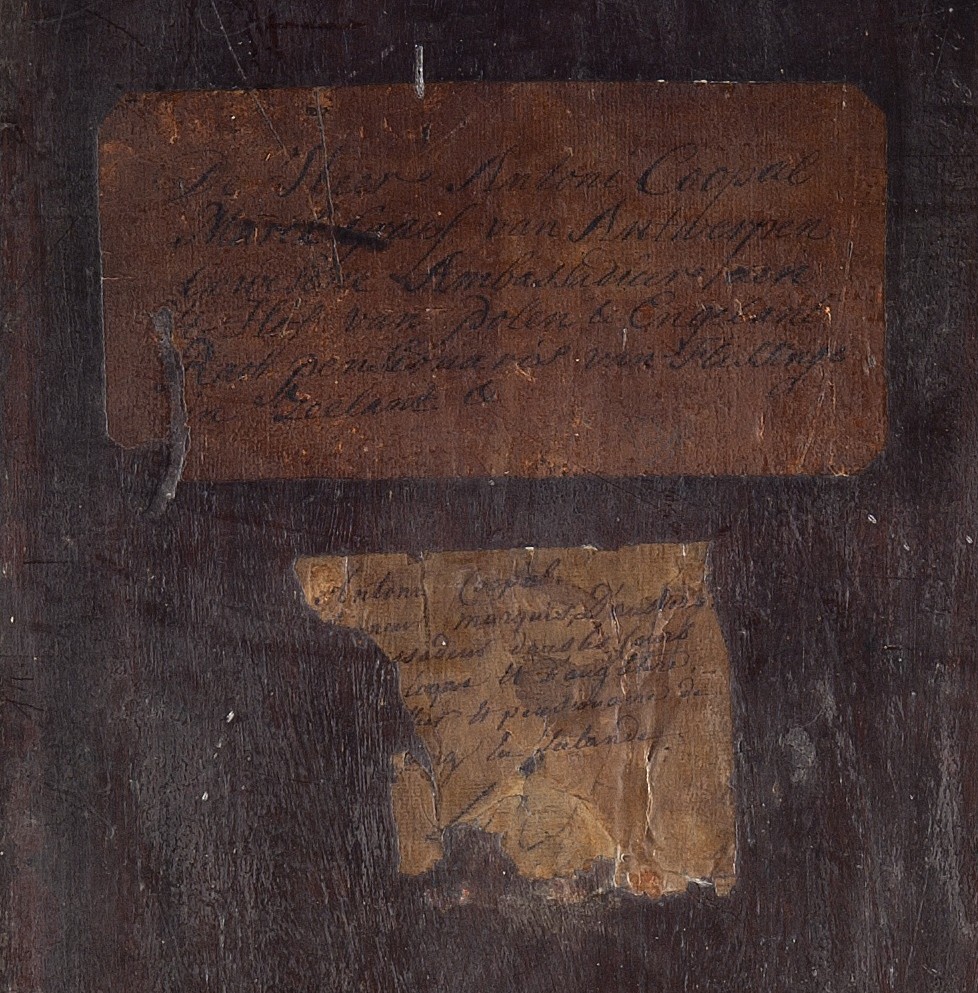 De Heer Antoni Coopal
Marck Graef van Antwerpen
Ambassadeur aen
't Hof van Polen & Engeland
Raet pensionaris van Flissinge
in Zeelant &
Antoni Coopal.
marquis D'anvers,
ssadeur dans les Cours
logne & d'angleterre.
ller & pensionaire de
ing En Zeelande.